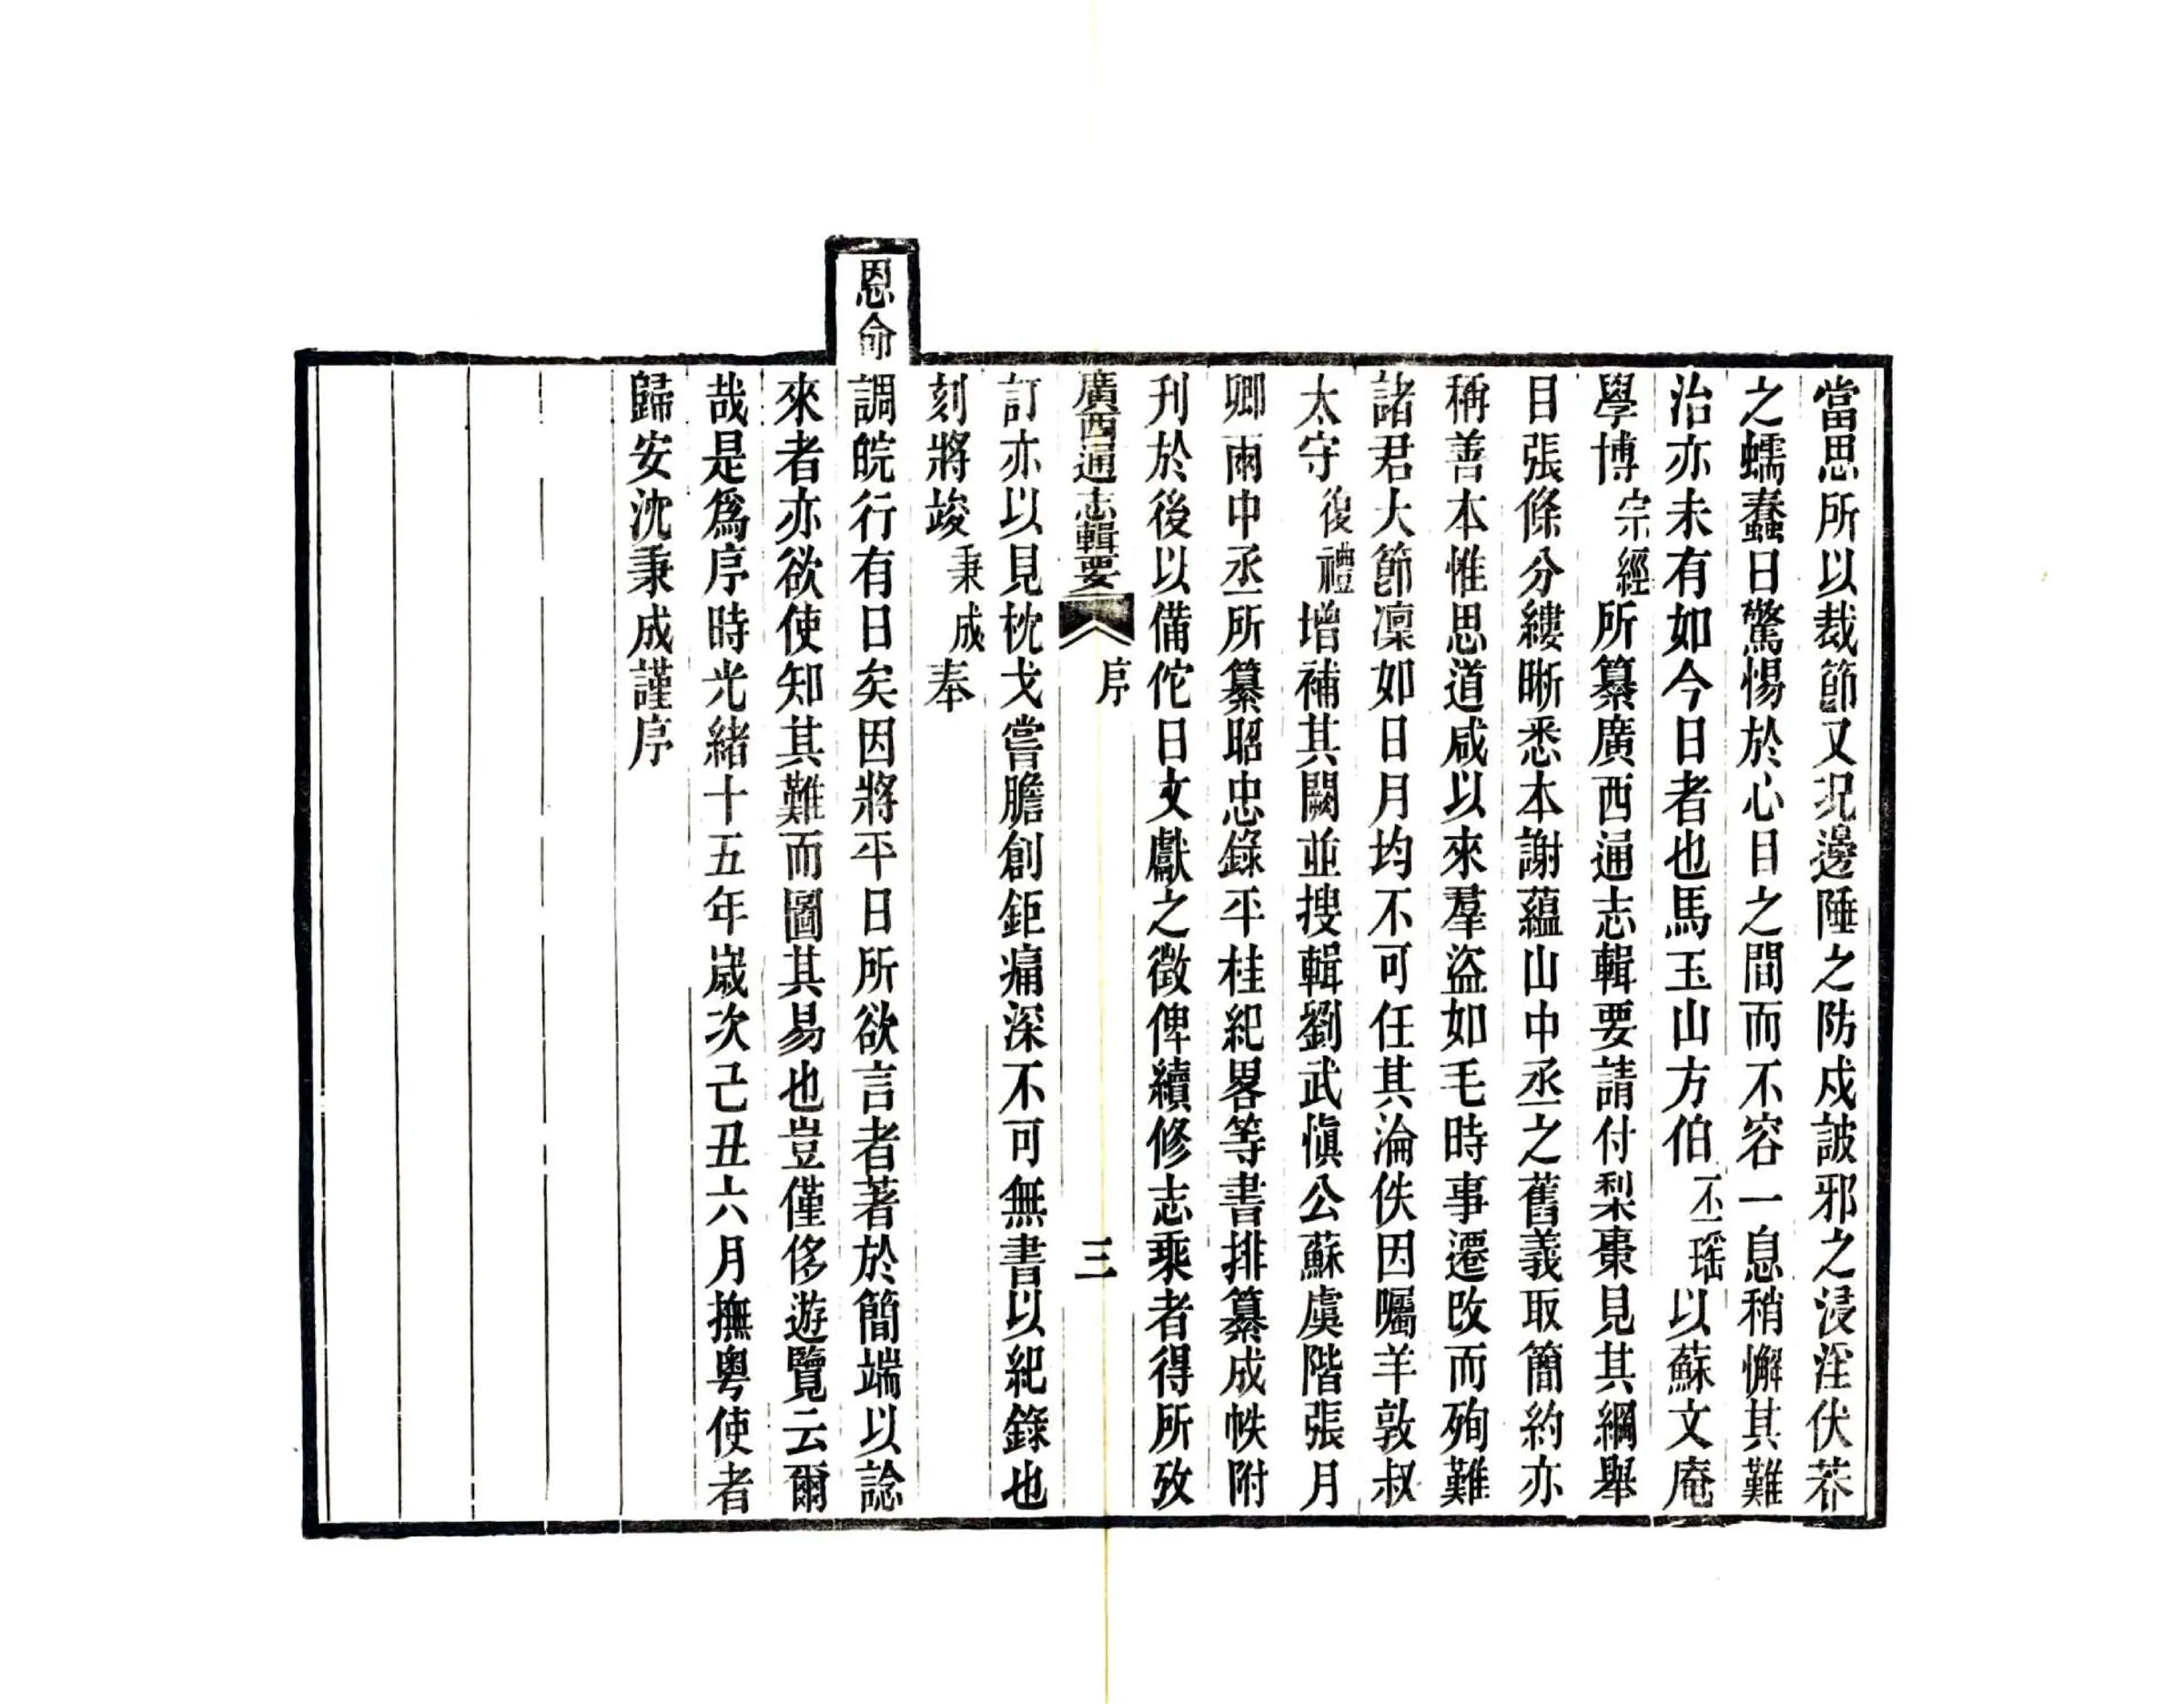 當思所以裁節又況邊陲之防戍詖邪之浸淫伏莽
之蠕蠢日驚惕於心目之間而不容一息稍懈其難
治亦未有如今日者也馬玉山方伯丕瑶以蘇文庵
學博宗經所纂廣西通志輯要請付梨棗見其綱舉
目張條分縷晰悉本謝蘊山中丞之舊義取簡約亦
稱善本惟思道咸以來羣盜如毛時事遷改而殉難
諸君大節凜如日月均不可任其淪佚因囑羊敦叔
太守復禮增補其闕並搜輯劉武愼公蘇虞階張月
卿兩中丞所纂昭忠錄平桂紀畧等書排纂成帙附
刋於後以備佗日文獻之徵俾續修志乘者得所攷
廣西通志輯要 序 三
訂亦以見枕戈嘗膽創鉅痛深不可無書以紀錄也
刻將竣秉成奉
恩命調皖行有日矣因將平日所欲言者著於簡端以諗
來者亦欲使知其難而圖其易也豈僅侈遊覽云爾
哉是爲序時光緒十五年歲次己丑六月撫粵使者
歸安沈秉成謹序